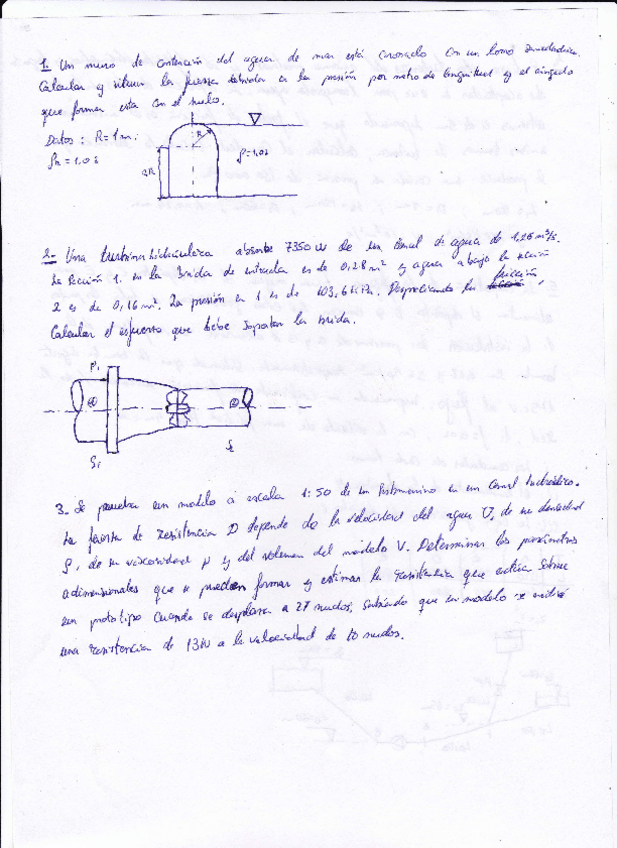 1. Un muro de contención del agua de mar está coronado con un lomo semicilíndrico.
Calcular y situar la fuerza debida a la presión por metro de longitud y el ángulo
que forma esta con el suelo.
Datos: R = 1 m.
ρR = 1.03
R
2R
ρ = 1.03
2.- Una turbina hidráulica absorbe 7350 W de un canal de agua de 1,26 m³/s.
La sección 1. en la brida de entrada es de 0,28 m² y aguas abajo la sección
2 es de 0,16 m². La presión en 1 es de 103,6 KPa. Despreciando la fricción.
Calcular el esfuerzo que debe soportar la brida.
P1
①
②
S1
S2
3.- Se prueba un modelo a escala 1:50 de un submarino en un canal hidráulico.
La fuerza de resistencia D depende de la velocidad del agua U, de su densidad
ρ, de su viscosidad μ y del volumen del modelo V. Determinar los parámetros
adimensionales que se pueden formar y estimar la resistencia que actúa sobre
un prototipo cuando se desplaza a 27 nudos, sabiendo que en modelo se midió
una resistencia de 13 N a la velocidad de 10 nudos.